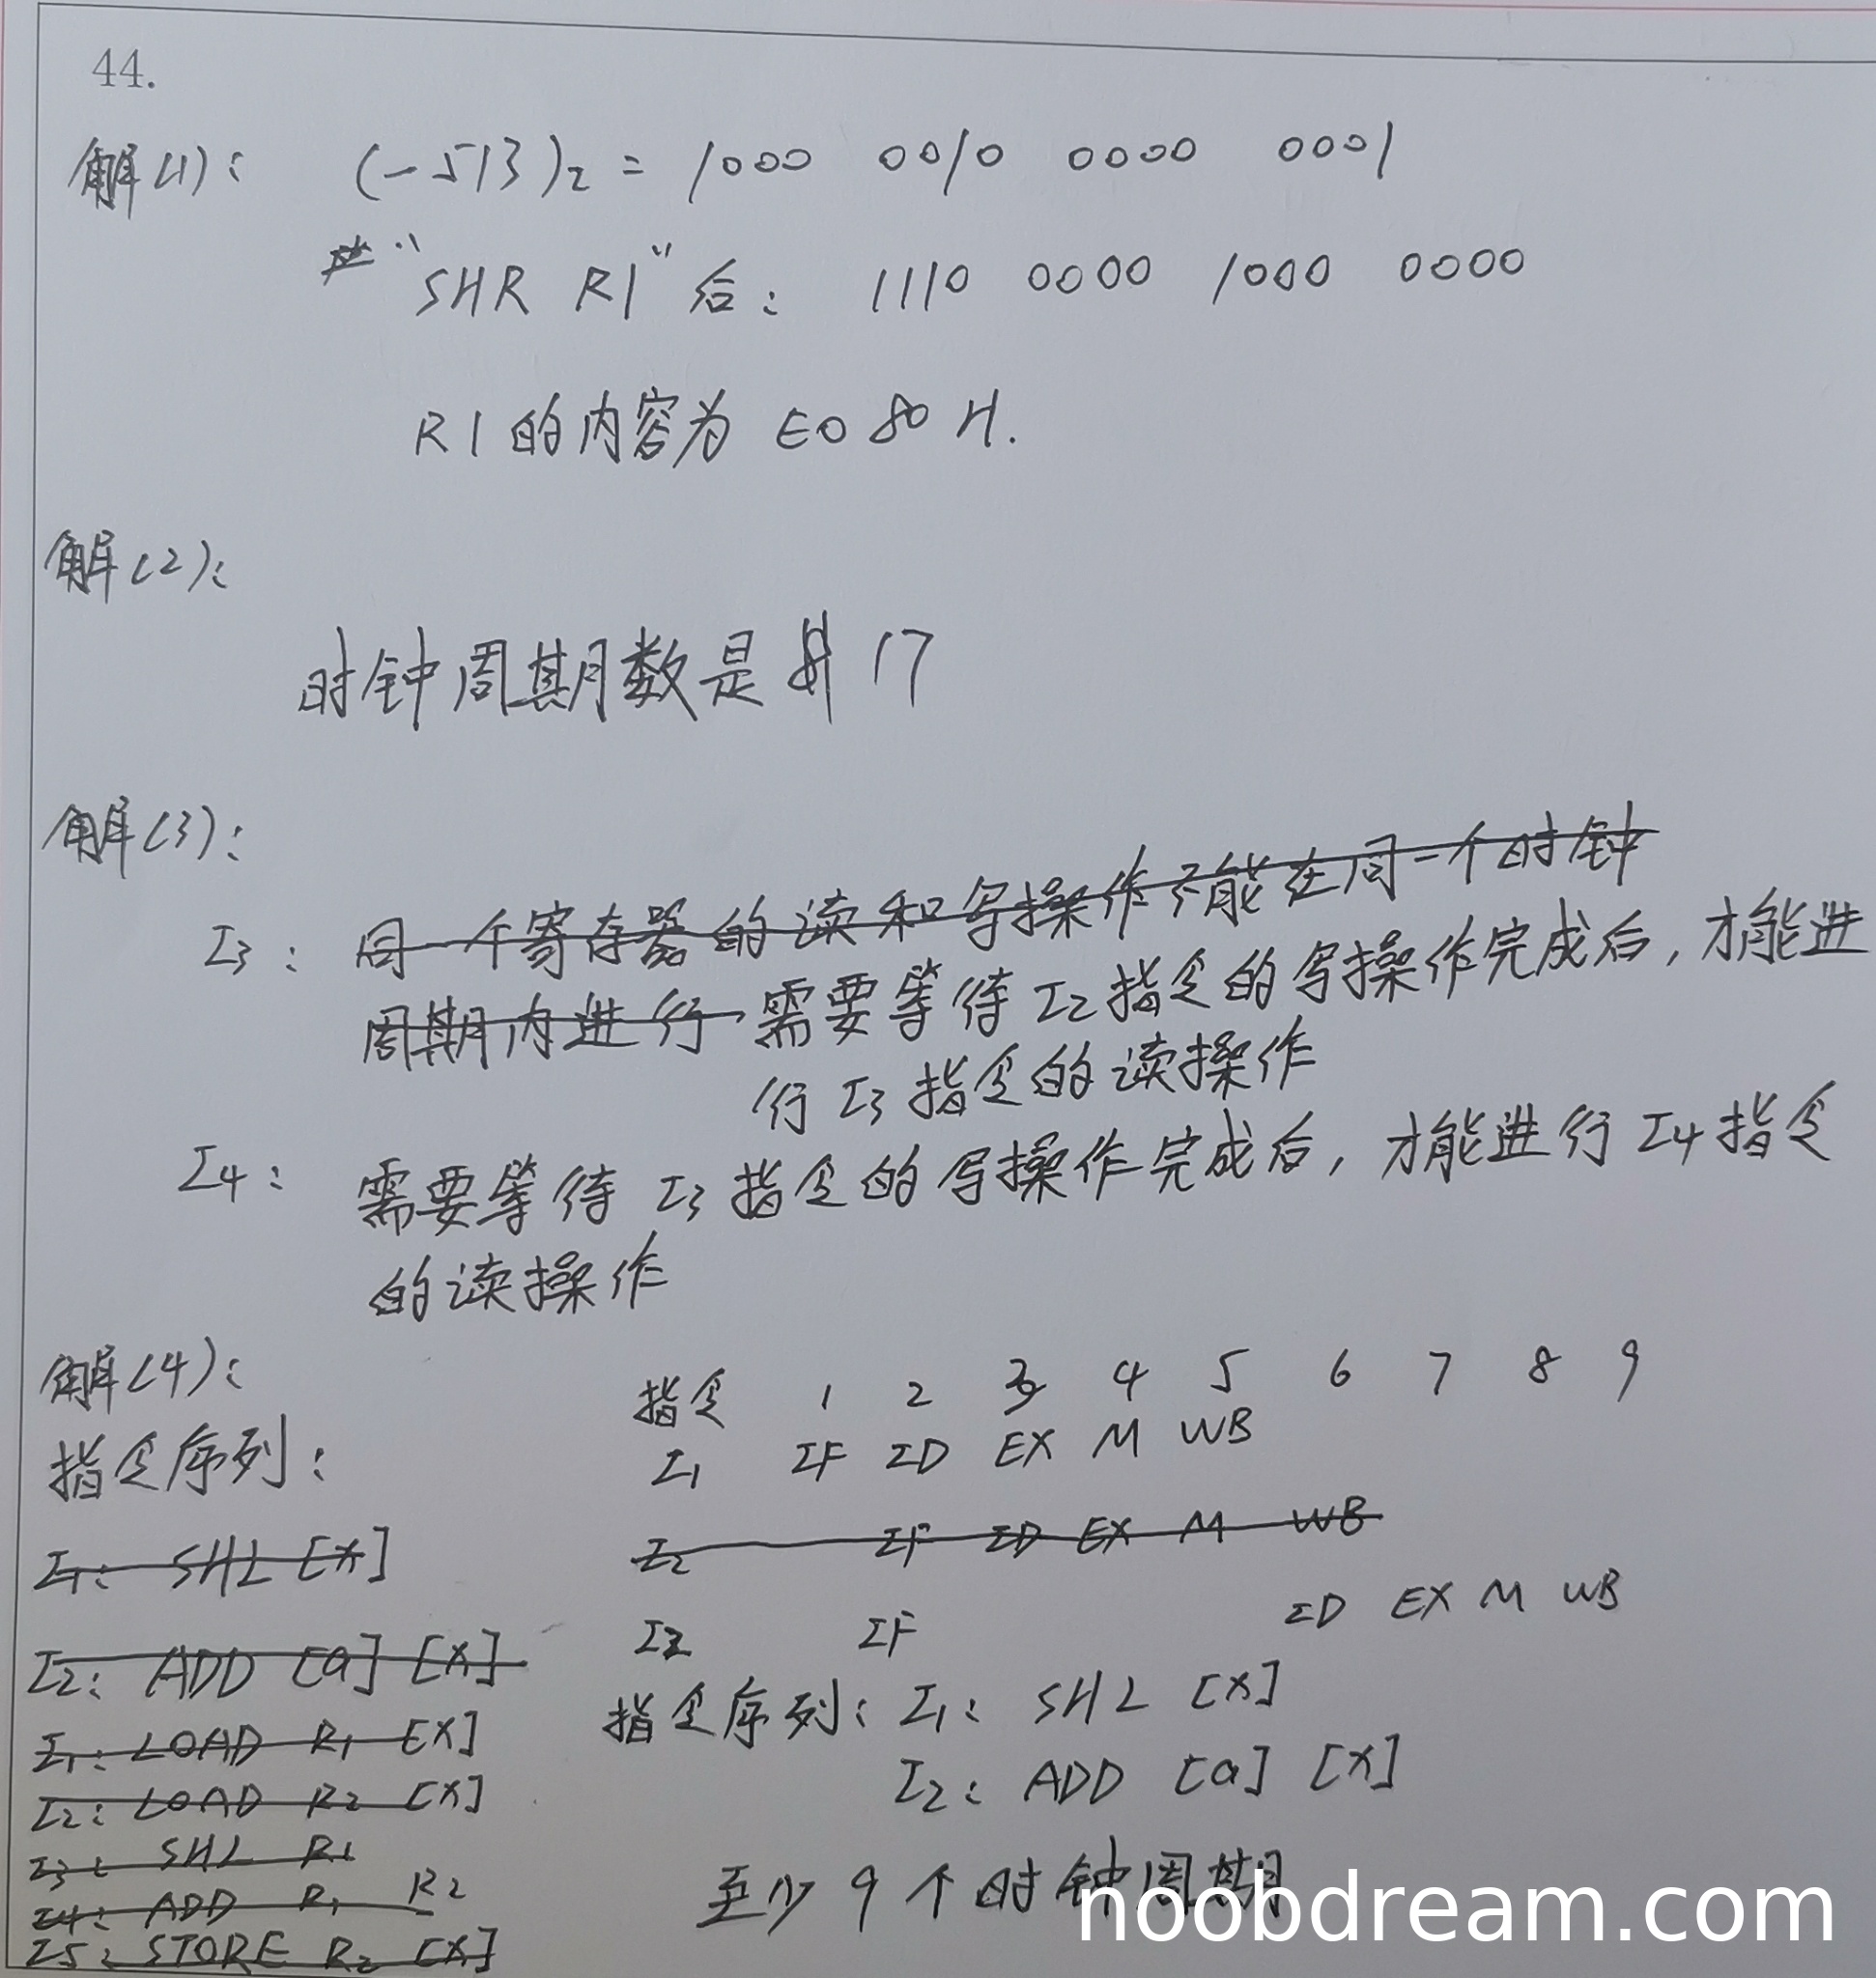 44.
解(1): (-513)₂ = 1000 0010 0000 0001
"SHR R1"后: 1110 0000 1000 0000
R1的内容为 E080H.
解(2):
时钟周期数是 17
解(3):
I3: 同一个寄存器的读和写操作不能在同一个时钟
周期内进行 需要等待I2指令的写操作完成后,才能进
行I3指令的读操作
I4: 需要等待I3指令的写操作完成后,才能进行I4指令
的读操作
解(4):
指令序列:
I1: SHL [X]
I2: ADD [a] [X]
I1: LOAD R1 [X]
I2: LOAD R2 [X]
I3: SHL R1
I4: ADD R1 R2
I5: STORE R2 [X]
指令 1 2 3 4 5 6 7 8 9
I1 IF ID EX M WB
I2 IF ID EX M WB
I2 IF ID EX M WB
指令序列: I1: SHL [X]
I2: ADD [a] [X]
至少9个时钟周期
noobdream.com